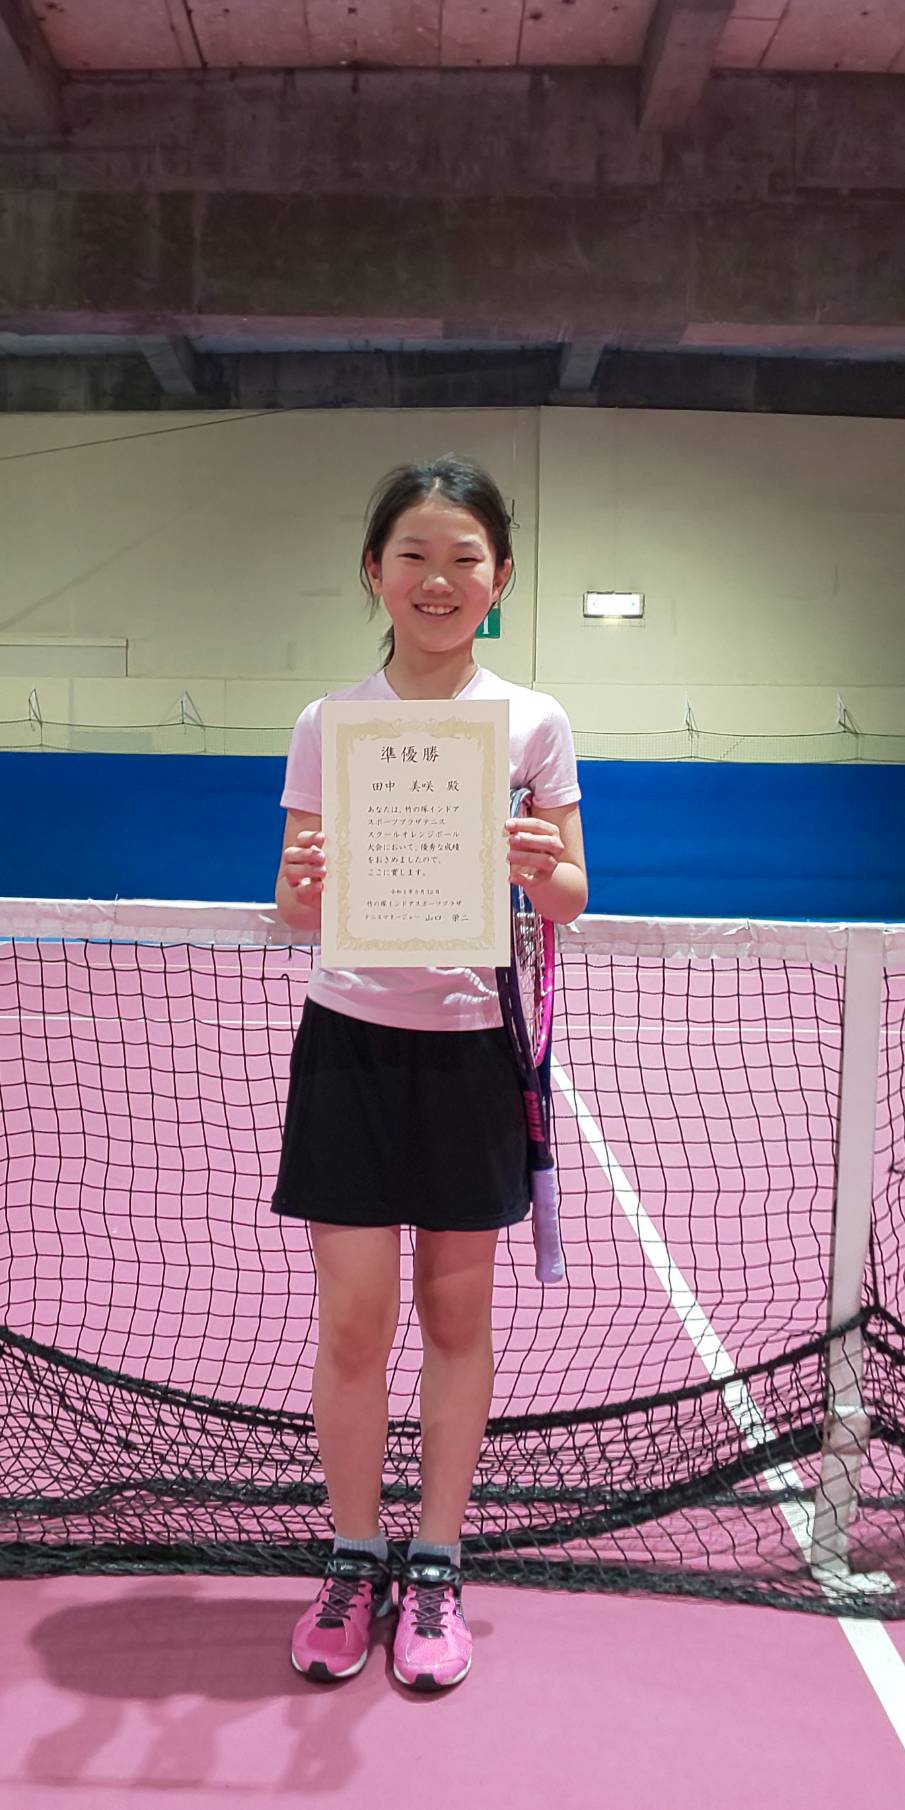 準優勝
田中 美咲 殿
あなたは、竹の塚インドア
スポーツプラザテニス
スクールオレンジボール
大会において、優秀な成績
をおさめましたので、
ここに賞します。
竹の塚インドアスポーツプラザ
テニスマネージャー 山口 栄二
1
prince